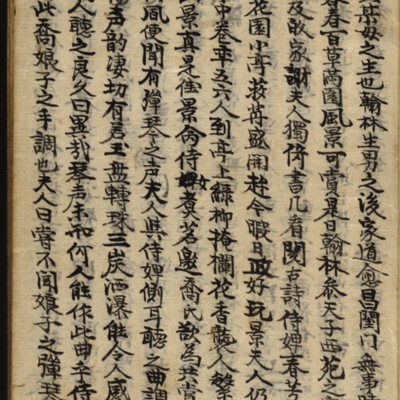 毋之主也翰林生男之後家道愈昌閨門無事時
春百草萬園風景可賞是日翰林參天子西苑之
及放家謝夫人獨倚書几看閱古詩侍婢春芳
花園小亭牧丹盛開趂今暇日政好玩景夫人仍
中春率五六人到亭上綠柳掩欄花香襲人繁
景真是佳景命侍女煮茗邀喬氏欲為共賞
風便聞有彈琴之声夫人與侍婢側耳聽之曲調
声韵凄切有若玉盤轉珠三峽洒瀑能令人感
人聽之良久曰異哉琴声未知何人能作此曲乎侍
此喬娘子之手調也夫人曰嘗不聞娘子之彈琴